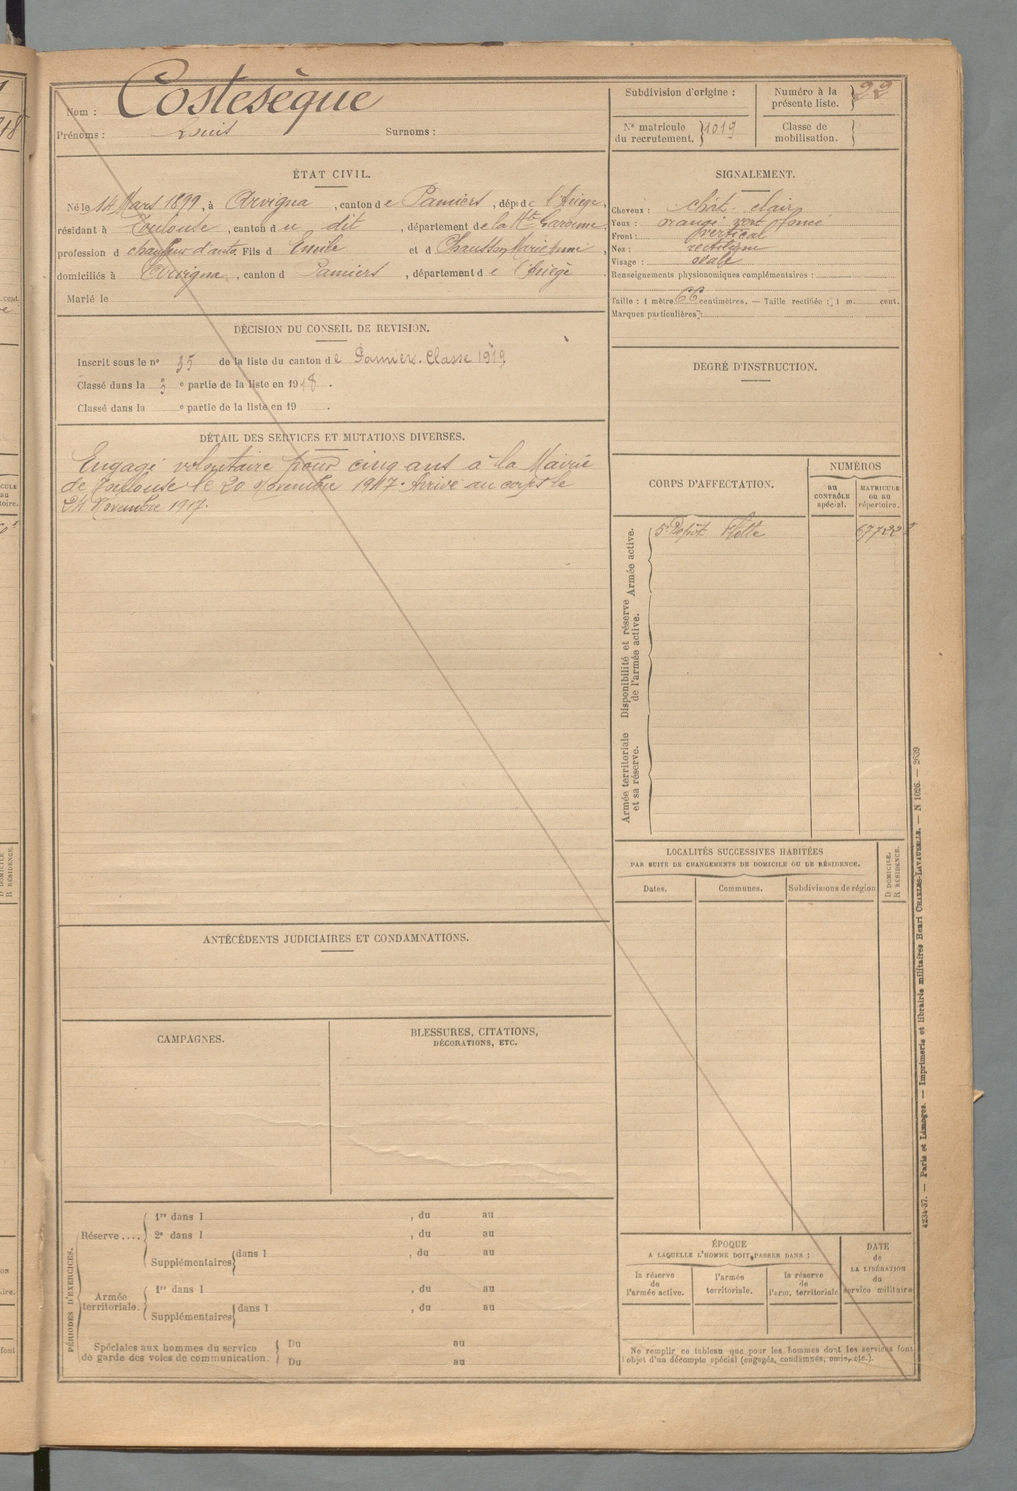 Nom : Costesèque
Prénoms : Louis Surnoms :
Subdivision d'origine :
Numéro à la présente liste. 22
N° matricule du recrutement. 1019
Classe de mobilisation.
ÉTAT CIVIL.
Né le 14 Mars 1899, à Arvigna, canton de Pamiers, dépt de l'Ariège,
résidant à Toulouse, canton du dit, département de la Hte Garonne,
profession d chauffeur d'auto Fils d Emile et d Marie
domiciliés à Arvigna, canton d Pamiers, département de l'Ariège.
Marié le
SIGNALEMENT.
Cheveux : chât. clair
Yeux : orangé vert foncé
Front : vertical
Nez : rectiligne
Visage : ovale
Renseignements physionomiques complémentaires :
Taille : 1 mètre 66 centimètres. — Taille rectifiée : 1 m. cent.
Marques particulières :
DÉCISION DU CONSEIL DE REVISION.
Inscrit sous le n° 35 de la liste du canton de Pamiers. Classe 1919
Classé dans la e partie de la liste en 1918.
Classé dans la e partie de la liste en 19 .
DEGRÉ D'INSTRUCTION.
DÉTAIL DES SERVICES ET MUTATIONS DIVERSES.
Engagé volontaire pour cinq ans à la Mairie
de Toulouse le 20 Novembre 1917. Arrivé au corps le
24 Novembre 1917.
CORPS D'AFFECTATION.
NUMÉROS
au CONTRÔLE spécial.
MATRICULE ou au répertoire.
Armée active.
5e Dépôt 67722
Disponibilité et réserve de l'armée active.
Armée territoriale et sa réserve.
LOCALITÉS SUCCESSIVES HABITÉES
PAR SUITE DE CHANGEMENTS DE DOMICILE OU DE RÉSIDENCE.
Dates. Communes. Subdivisions de région
D DOMICILE.
R RÉSIDENCE.
ANTÉCÉDENTS JUDICIAIRES ET CONDAMNATIONS.
CAMPAGNES.
BLESSURES, CITATIONS,
DÉCORATIONS, ETC.
PÉRIODES D'EXERCICES.
Réserve.... 1re dans l , du au
2e dans l , du au
Supplémentaires dans l , du au
Armée territoriale. 1re dans l , du au
Supplémentaires dans l , du au
Spéciales aux hommes du service
de garde des voies de communication. Du au
Du au
ÉPOQUE
A LAQUELLE L'HOMME DOIT PASSER DANS :
la réserve de l'armée active.
l'armée territoriale.
la réserve de l'arm. territoriale
DATE de LA LIBÉRATION du service militaire
Ne remplir ce tableau que pour les hommes dont les services font
l'objet d'un décompte spécial (engagés, condamnés, omis, etc.).
4234-37. — Paris et Limoges. — Imprimerie et librairie militaires Henri CHARLES-LAVAUZELLE. — N 1026. — 2639